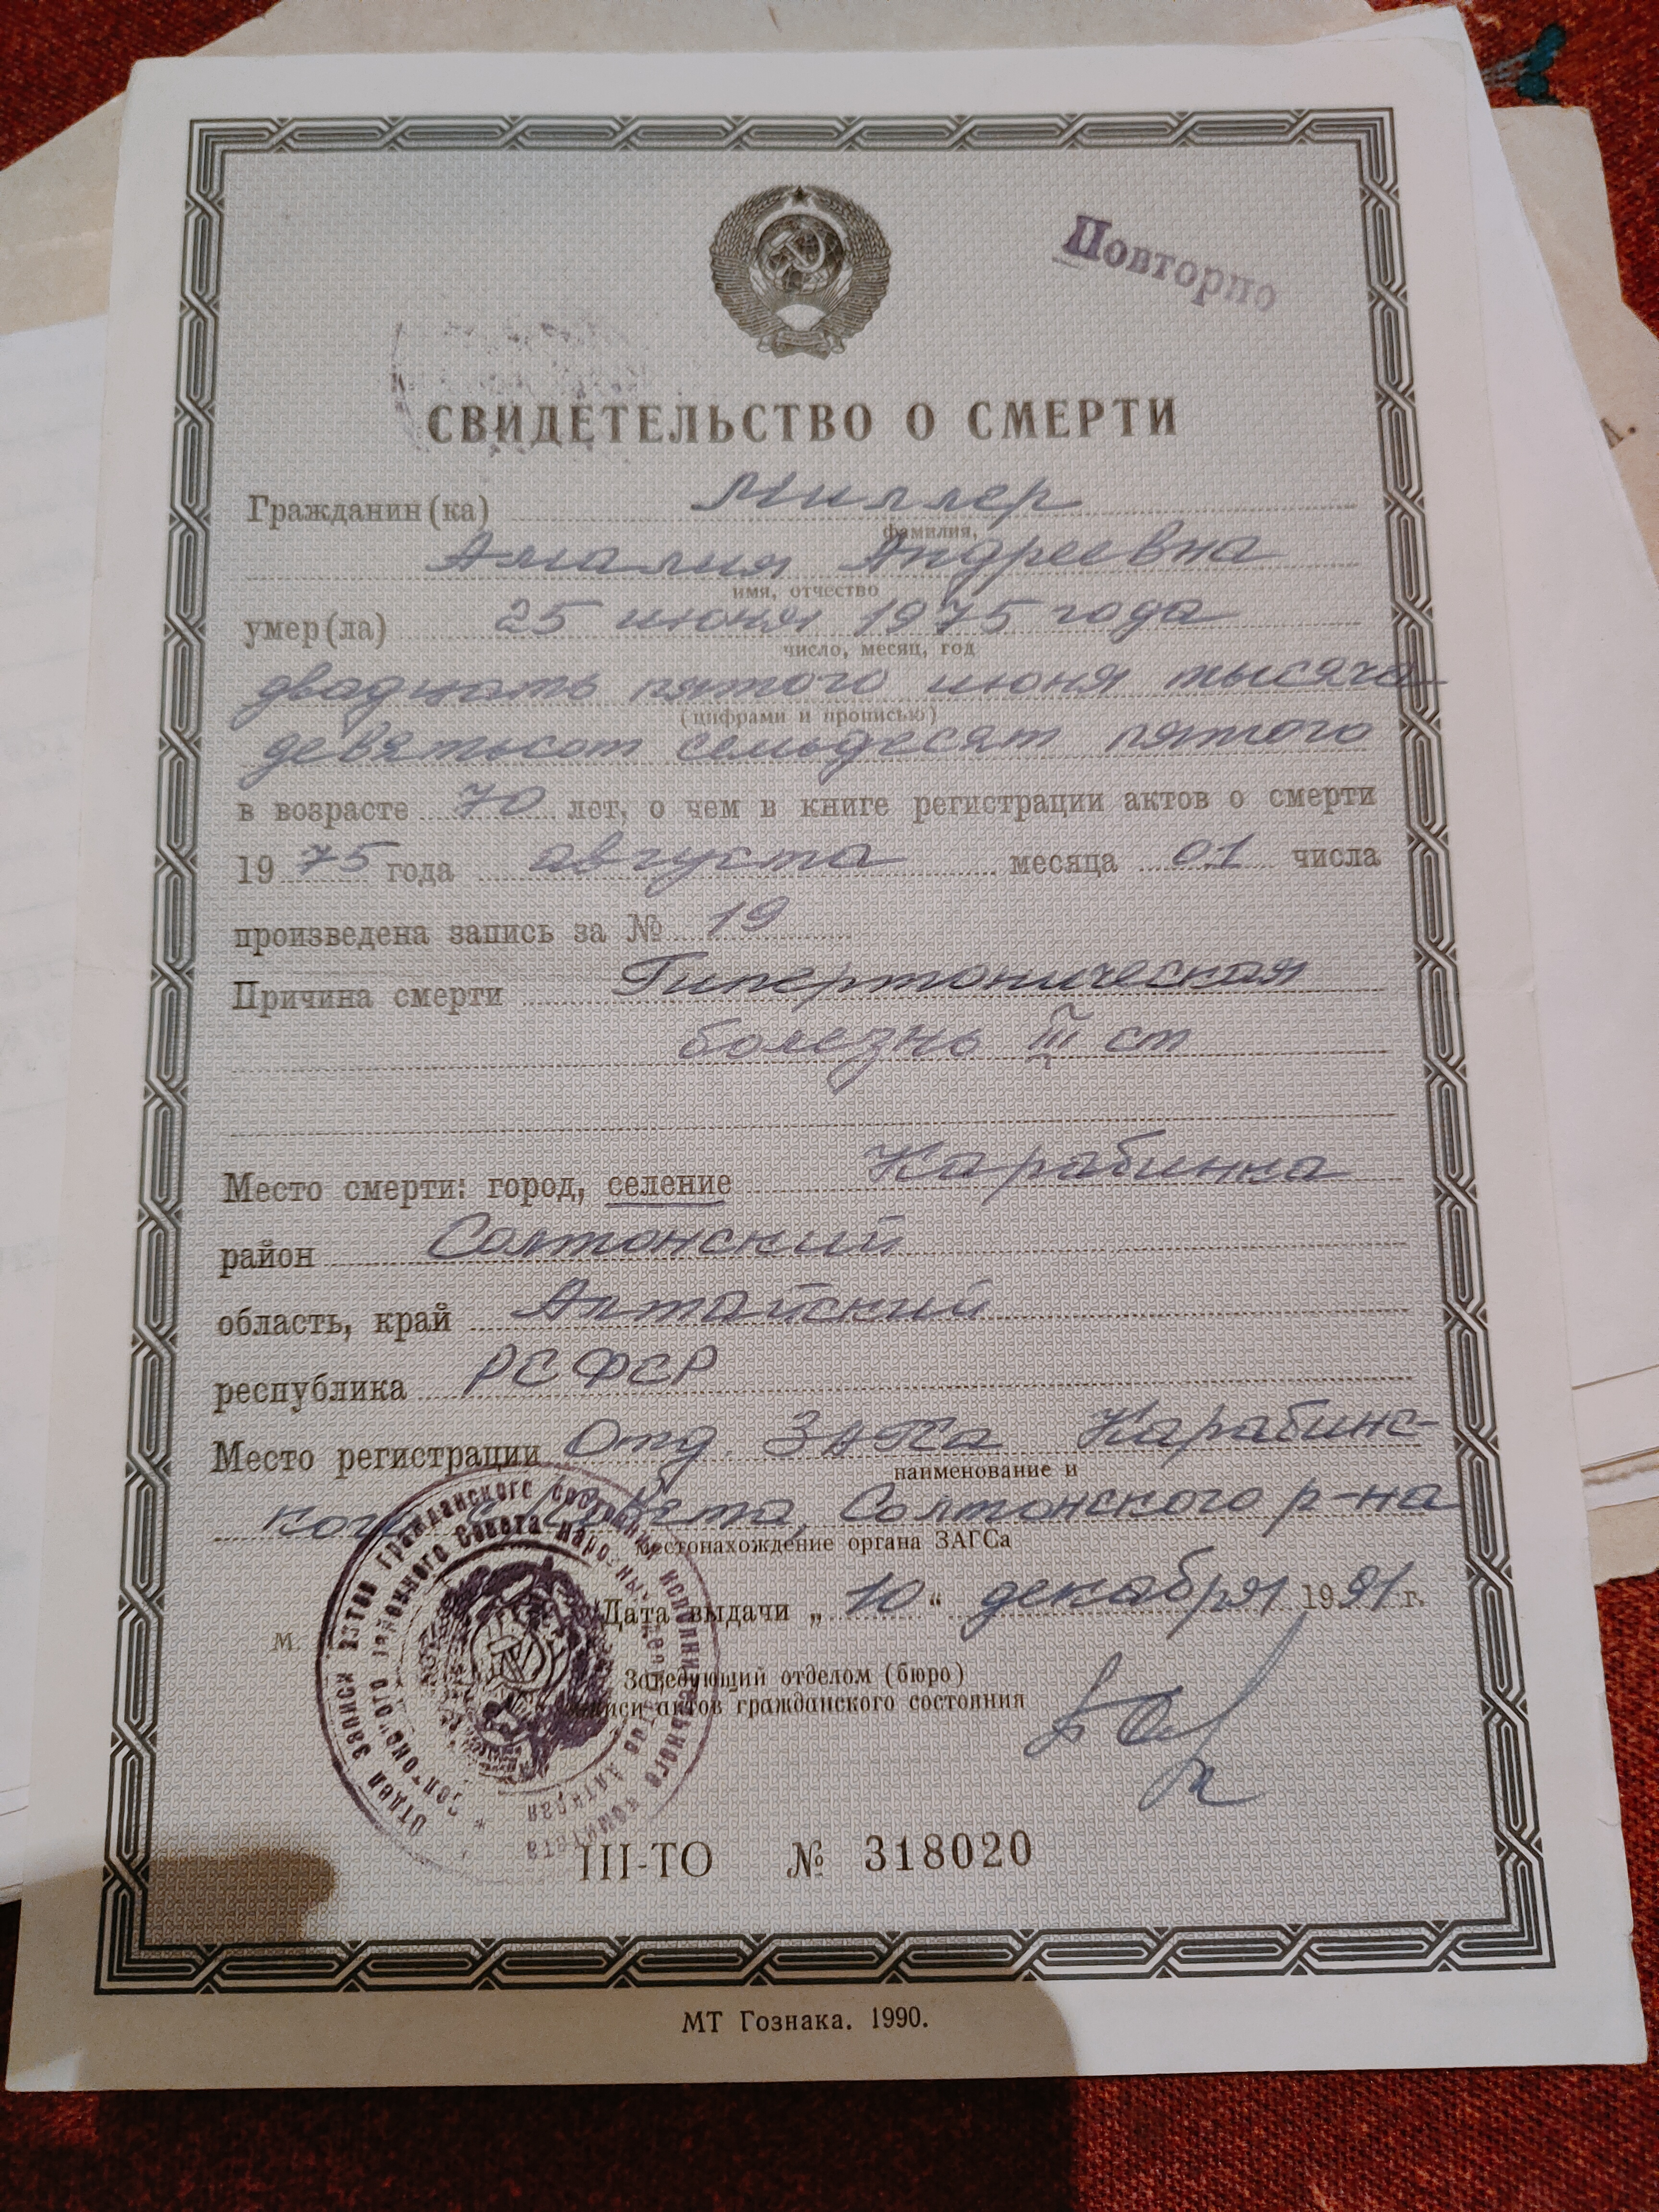 Повторно
СВИДЕТЕЛЬСТВО О СМЕРТИ
Гражданин(ка) Миллер
фамилия,
Амалия Андреевна
имя, отчество
умер(ла) 25 июня 1975 года
число, месяц, год
двадцать пятого июня тысяча
(цифрами и прописью)
девятьсот семьдесят пятого
в возрасте 70 лет, о чем в книге регистрации актов о смерти
1975 года августа месяца 01 числа
произведена запись за № 19
Причина смерти Гипертоническая
болезнь III ст
Место смерти: город, селение Карабинка
район Солтонский
область, край Алтайский
республика РСФСР
Место регистрации Отд. ЗАГСа Карабинс-
наименование и
кого с/Совета, Солтонского р-на
местонахождение органа ЗАГСа
Дата выдачи „10“ декабря 1991 г.
М.
Заведующий отделом (бюро)
записи актов гражданского состояния
Отдел записи актов гражданского состояния исполнительного комитета
Солтонского районного Совета народных депутатов Алтайского края
III-ТО № 318020
МТ Гознака. 1990.